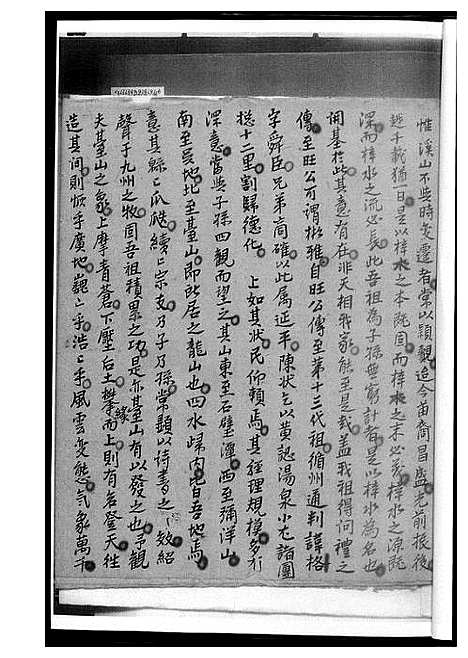 惟溪山不與時変遷者常以穎觀迨今苗裔昌盛光前振後
越千載猶一日是以梓水之本既固而梓水之末必茂梓水之源既
深而梓水之流必長此吾祖為子孫無窮計者是以梓水為名也
開基於此其意有在非天相我家能至是哉蓋我祖得詞禮之
傳至旺公可謂 雅自旺公傳至第十三代祖循州通判諱格
字舜臣兄弟商確以此属延平陳狀乞以黃認湯泉小尤諸團
總十二里割歸德化 上如其狀民仰賴焉其經理規模多行
深意當與子孫四觀而望之其山東至石壁潭西至彌洋山
南至 地北至基山即所居之龍山也四水歸內皆吾地焉
意其縣〻瓜瓞續〻宗支乃子乃孫常顯以詩書之 效紹
聲于九州之牧周吾祖積累之功是亦基山有以發之也予觀
夫基山之象上摩青蒼下壓后土攀緣而上則有名登天徃
造其间則恢乎廣地巍〻乎浩〻乎風雲变態气象萬千